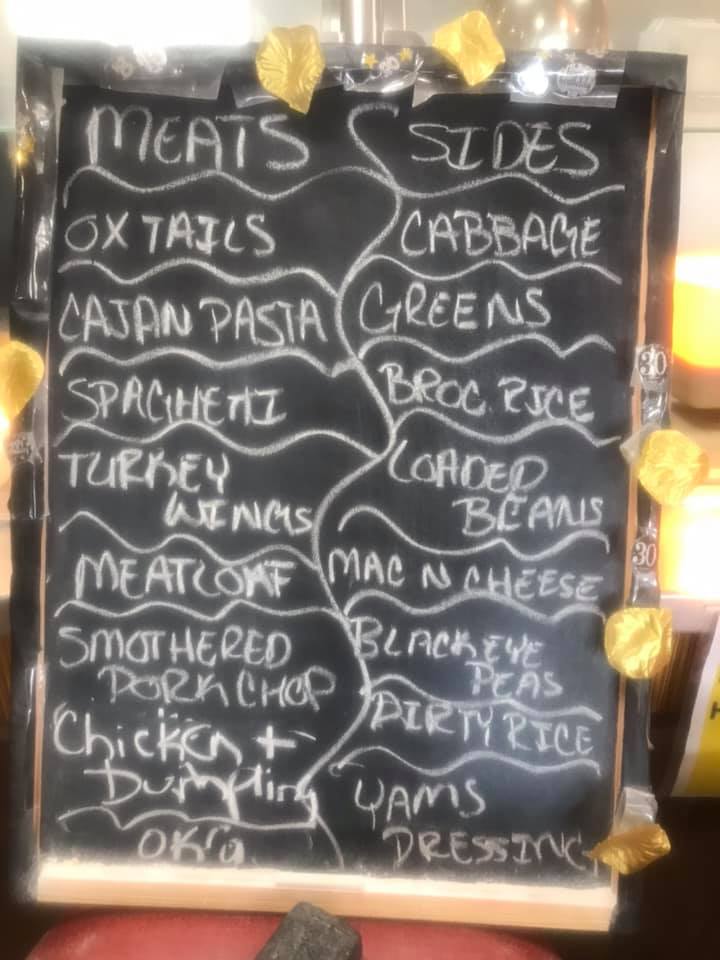 MEATS
OXTAILS
CAJAN PASTA
SPAGHETTI
TURKEY
WINGS
MEATLOAF
SMOTHERED
PORK CHOP
Chicken +
Dumpling
OKra
SIDES
CABBAGE
GREENS
BROC RICE
LOADED
BEANS
MAC N CHEESE
BLACK EYE
PEAS
DIRTY RICE
YAMS
DRESSING
30
30